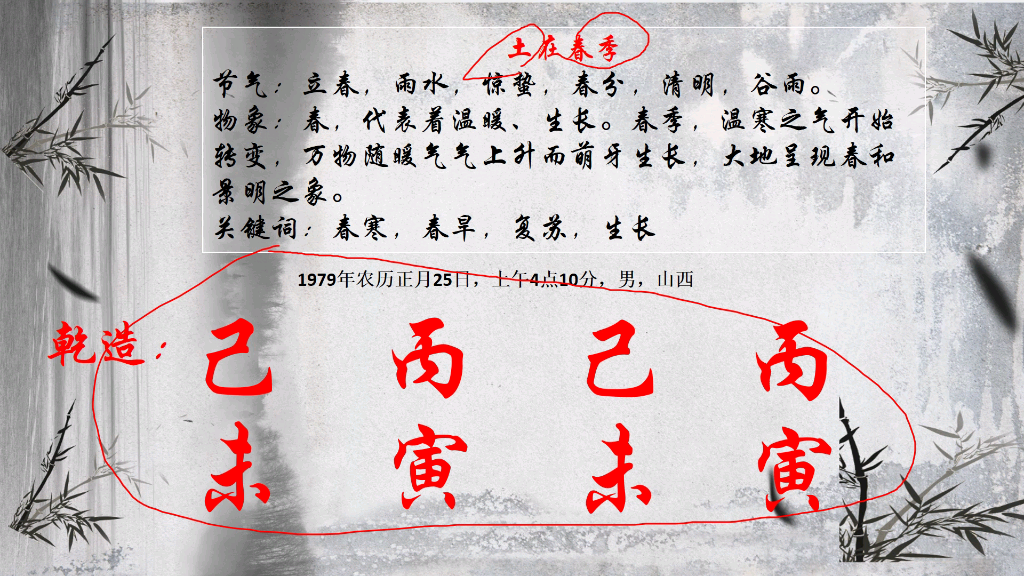 土在春季
节气：立春，雨水，惊蛰，春分，清明，谷雨。
物象：春，代表着温暖、生长。春季，温寒之气开始
转变，万物随暖气气上升而萌牙生长，大地呈现春和
景明之象。
关键词：春寒，春旱，复苏，生长
1979年农历正月25日，上午4点10分，男，山西
乾造：己 丙 己 丙
未 寅 未 寅